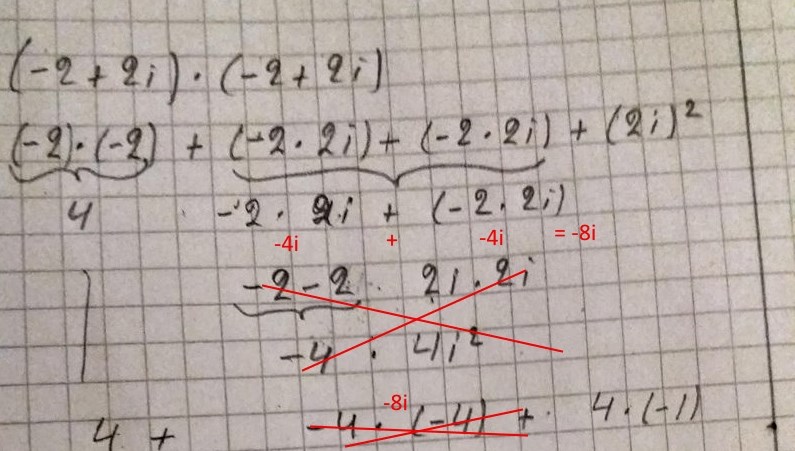 (-2 + 2i) · (-2 + 2i)
(-2) · (-2) + (-2 · 2i) + (-2 · 2i) + (2i)²
4 -2 · 2i + (-2 · 2i)
-4i + -4i = -8i
-2 - 2 · 2i · 2i
-4 · 4i²
-8i
4 + -4 · (-4) + 4 · (-1)